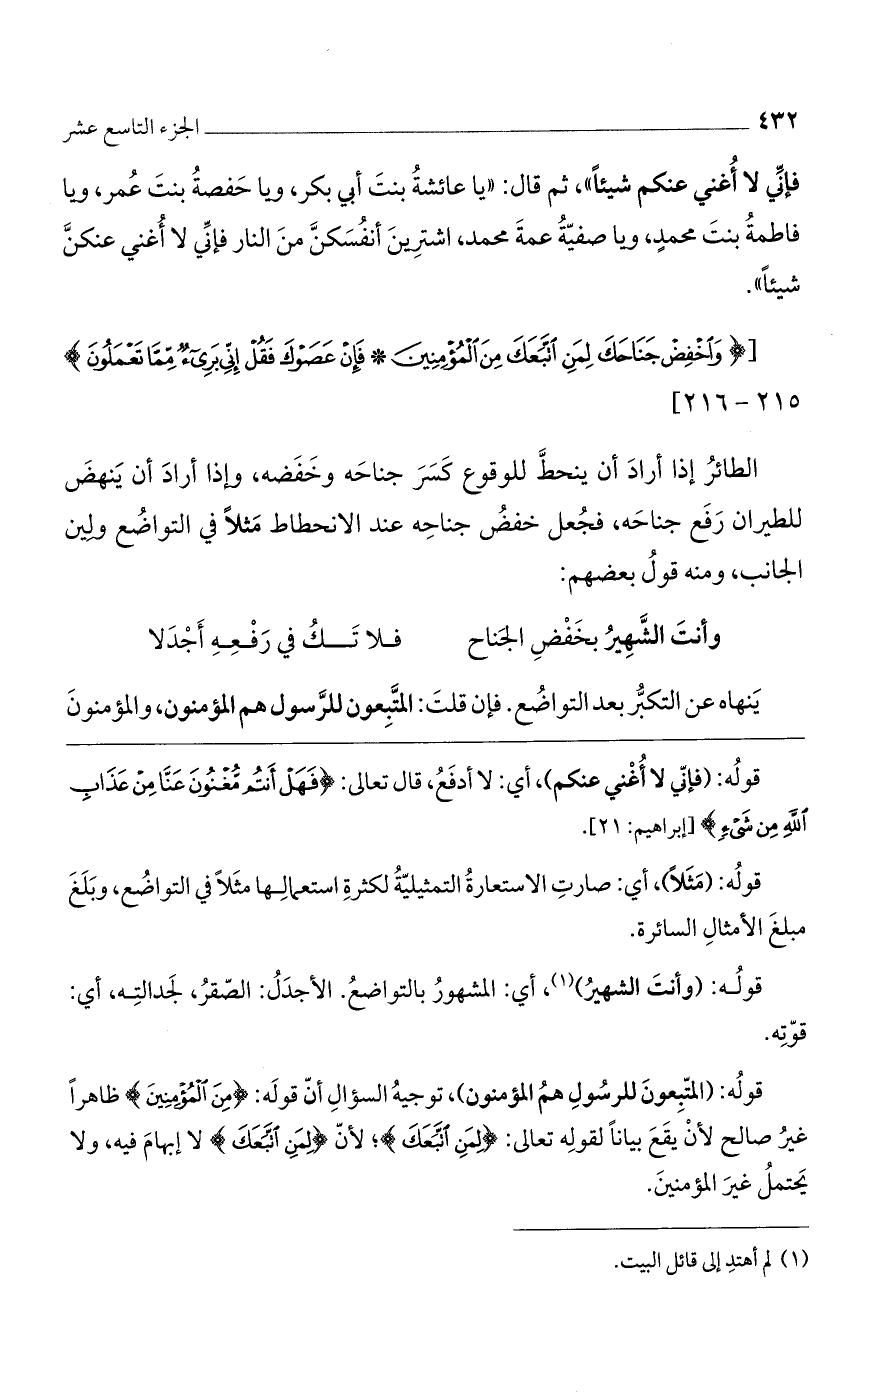 ٤٣٢ الجزء التاسع عشر
فإنِّي لا أُغني عنكم شيئاً»، ثم قال: «يا عائشةُ بنتَ أبي بكر، ويا حَفصةُ بنتَ عُمر، ويا
فاطمةُ بنتَ محمدٍ، ويا صفيّةُ عمةَ محمد، اشترِينَ أنفُسَكنَّ منَ النار فإنِّي لا أُغني عنكنَّ
شيئاً».
[﴿وَٱخْفِضْ جَنَاحَكَ لِمَنِ ٱتَّبَعَكَ مِنَ ٱلْمُؤْمِنِينَ * فَإِنْ عَصَوْكَ فَقُلْ إِنِّى بَرِىٓءٌ مِّمَّا تَعْمَلُونَ﴾
٢١٥ – ٢١٦]
الطائرُ إذا أرادَ أن ينحطَّ للوقوع كَسَرَ جناحَه وخَفَضه، وإذا أرادَ أن يَنهضَ
للطيران رَفَع جناحَه، فجُعل خفضُ جناحِه عند الانحطاط مَثلاً في التواضُع ولِين
الجانب، ومنه قولُ بعضهم:
وأنتَ الشَّهِيرُ بخَفْضِ الجَناح فـلا تَـــكُ في رَفْـعِـهِ أَجْدَلا
يَنهاه عن التكبُّر بعد التواضُع. فإن قلتَ: المتَّبِعون للرَّسول هم المؤمنون، والمؤمنونَ
قولُه: (فإنّي لا أُغْني عنكم)، أي: لا أدفَعُ، قال تعالى: ﴿فَهَلْ أَنتُم مُّغْنُونَ عَنَّا مِنْ عَذَابِ
ٱللَّهِ مِن شَىْءٍ﴾ [إبراهيم: ٢١].
قولُه: (مَثَلاً)، أي: صارتِ الاستعارةُ التمثيليّةُ لكثرةِ استعمالِـها مثَلاً في التواضُع، وبَلَغَ
مبلغَ الأمثالِ السائرة.
قولُـه: (وأنتَ الشهيرُ)(١)، أي: المشهورُ بالتواضعُ. الأجدَلُ: الصّقرُ، لجَدالتِـه، أي:
قوّتِه.
قولُه: (المتّبِعونَ للرسُولِ همُ المؤمنون)، توجيهُ السؤالِ أنّ قولَه: ﴿مِنَ ٱلْمُؤْمِنِينَ﴾ ظاهراً
غيرُ صالح لأنْ يقَعَ بياناً لقولِه تعالى: ﴿لِمَنِ ٱتَّبَعَكَ﴾؛ لأنّ ﴿لِمَنِ ٱتَّبَعَكَ﴾ لا إبهامَ فيه، ولا
يَحتملُ غيرَ المؤمنينَ.
(١) لم أهتدِ إلى قائل البيت.